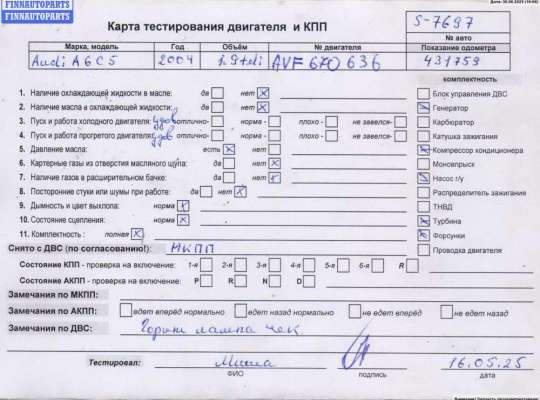 FINNAUTOPARTS
FINNAUTOPARTS
FINNAUTOPARTS
Карта тестирования двигателя и КПП
S-7697
№ авто
Марка, модель Год Объём № двигателя Показание одометра
Audi A6C5 2004 1.9tdi AVF 670 636 431759
комплектность
1. Наличие охлаждающей жидкости в масле: да нет
Блок управления ДВС
2. Наличие масла в охлаждающей жидкости: да нет
Генератор
3. Пуск и работа холодного двигателя: удов отлично- норма - плохо - не завелся-
Карбюратор
4. Пуск и работа прогретого двигателя: удов отлично- норма - плохо - не завелся-
Катушка зажигания
5. Давление масла: есть нет
Компрессор кондиционера
6. Картерные газы из отверстия масляного щупа: да нет
Моновпрыск
7. Наличие газов в расширительном бачке: да нет
Насос г/у
8. Посторонние стуки или шумы при работе: да нет
Распределитель зажигания
9. Дымность и цвет выхлопа: норма
ТНВД
10. Состояние сцепления: норма
Турбина
11. Комплектность : полная
Форсунки
Снято с ДВС (по согласованию!): МКПП
Проводка двигателя
Состояние КПП - проверка на включение: 1-я 2-я 3-я 4-я 5-я 6-я R
Состояние АКПП - проверка на включение: P R N D
Замечания по МКПП:
Замечания по АКПП: едет вперёд нормально едет назад нормально не едет вперёд не едет назад
Замечания по ДВС: Горит лампа чек
Тестировал: Миша 16.05.25
ФИО подпись дата